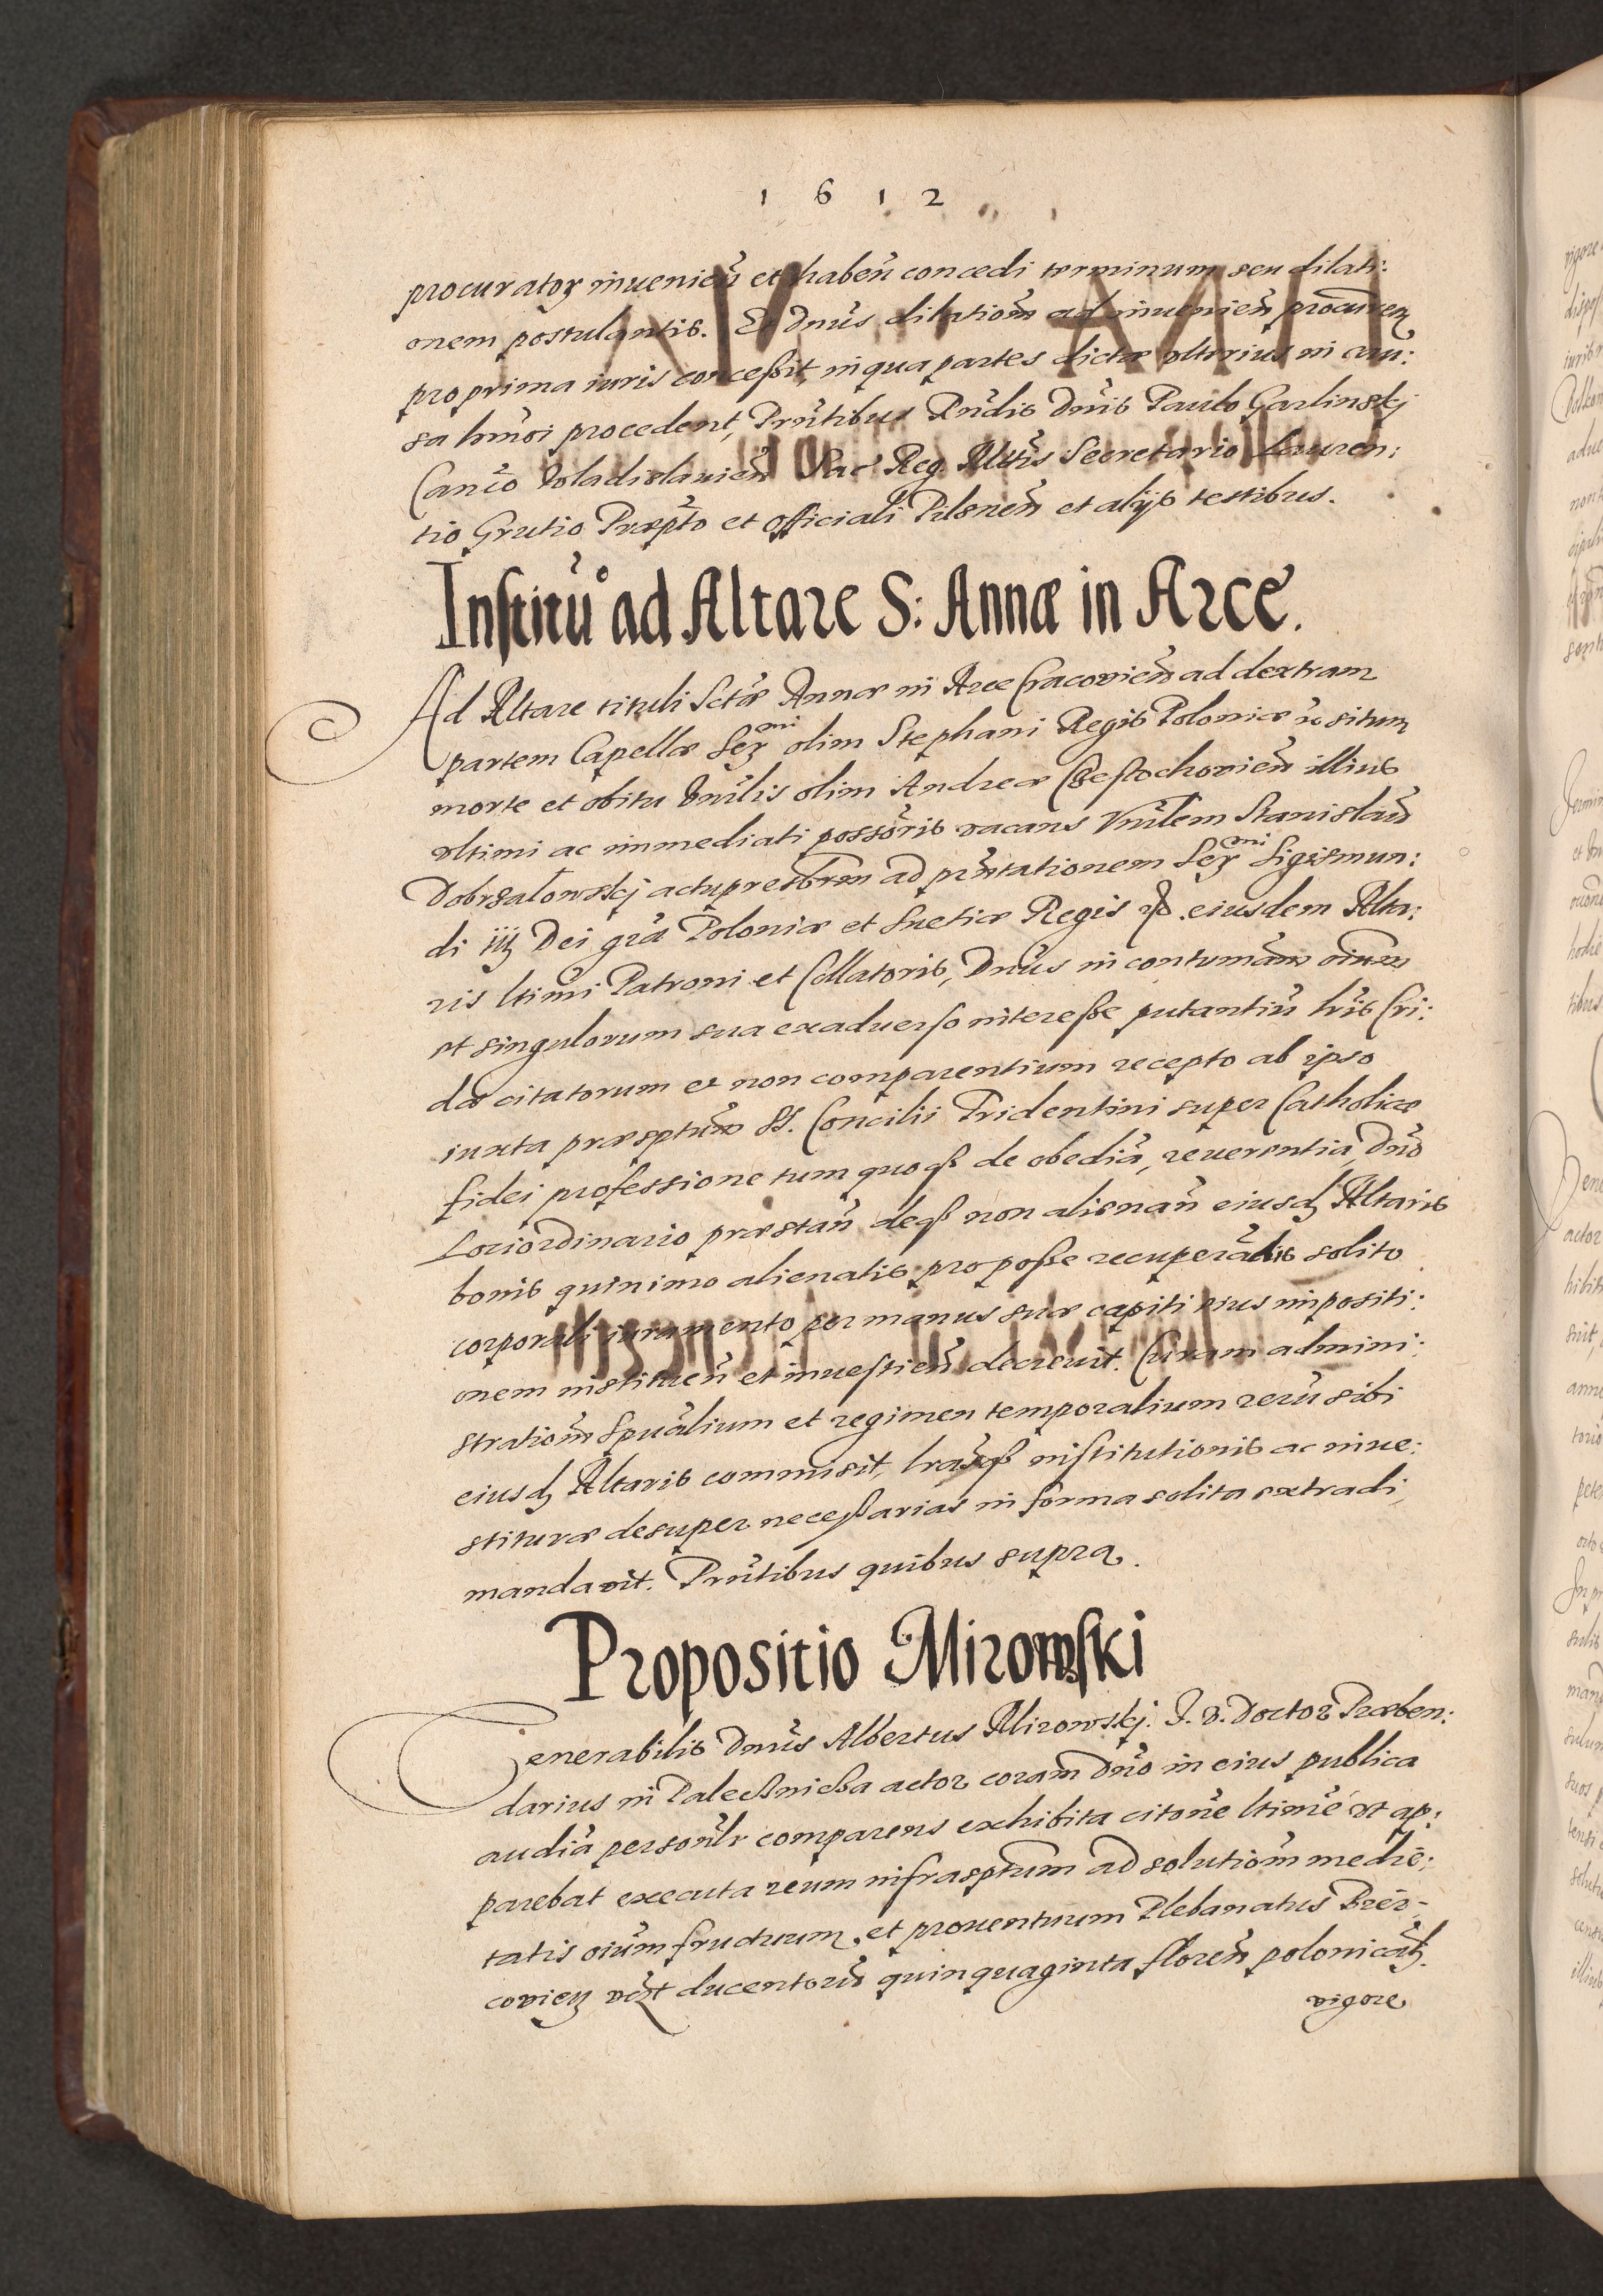 1 6 1 2
procurator invenien̄ et haben̄ concedi terminum seu dilati:
onem postulantis. Et Dnūs dilationem̄ ad invenien̄ procūrem
pro prima iuris conceßit, in qua partes dictæ ulterius in cau:
sa hmōi procedent, Prn̄tibus Rn̄dis Dn̄is Paulo Garlinskj
Canc̄o Vladislavien̄ Sac Reg. Mttis Secretario Lauren:
tio Grutio Præpt̄o et officiali Pilsnen̄ et alijs testibus.
Institū° ad Altare S: Annæ in Arce.
Ad Altare tituli Sctæ Annæ in Arce Cracovien̄ ad dextram
partem Capellæ Ser mi olim Stephani Regis Poloniæ &c situm
morte et obitu Vn̄lis olim Andreæ Cżestochovien̄ illius
ultimi ac immediati posss̄oris vacans Vn̄lem Stanislaū
Dobrsalowskj actu presb̄rm ad prn̄tationem Ser mi Sigismun:
di iij Dei grā Poloniæ et Suetiæ Regis &c. eiusdem Alta:
ris ltimi Patroni et Collatoris, Dnūs in contumām oīum
et singulorum sua exadverso intereße putantiū lrīs Cri:
dæ citatorum et non comparentium recepto ab ipso
iuxta præsptūm SS. Concilii Tridentini super Catholicæ
fidei professione tum quoqȝ de obediā, reverentia, Dnō
Loci ordinario præstan̄ deqȝ non alienan̄ eiusdȝ Altaris
bonis quinimo alienatis pro poße recuperādis solito
corporali iuramento per manus suæ capiti eius impositi:
onem instituen̄ et investien̄ decrevit. Curam admini:
strationem̄ Spuālium et regimen temporalium rerū sibi
eiusdȝ Altaris commisit, lrāsqȝ institutionis ac inve:
stituræ desuper neceßarias in forma solita extradi
mandavit. Prn̄tibus quibus supra.
Propositio Mirowski
Venerabilis Dnūs Albertus Mirowskj. J. V. Doctor Præben:
darius in Paleckniċa actor coram Dnō in eius publica
audiā personlr comparens exhibita citōne ltimē ut ap:
parebat executa reum infrasptum ad solutionem̄ medie:
tatis oīum fructuum et proventuum Plebanatus Brēz-
covien̄ vȝt ducentorū quinquaginta floren̄ polonicalȝ
vigore